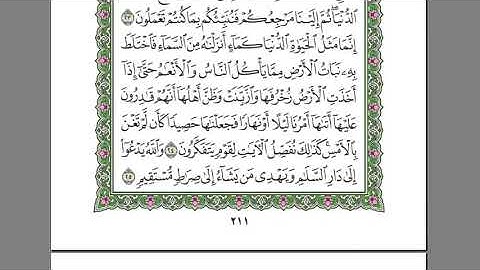 ٱلدُّنۡيَاۖ ثُمَّ إِلَيۡنَا مَرۡجِعُكُمۡ فَنُنَبِّئُكُم بِمَا كُنتُمۡ تَعۡمَلُونَ ٢٣
إِنَّمَا مَثَلُ ٱلۡحَيَوٰةِ ٱلدُّنۡيَا كَمَآءٍ أَنزَلۡنَٰهُ مِنَ ٱلسَّمَآءِ فَٱخۡتَلَطَ
بِهِۦ نَبَاتُ ٱلۡأَرۡضِ مِمَّا يَأۡكُلُ ٱلنَّاسُ وَٱلۡأَنۡعَٰمُ حَتَّىٰٓ إِذَآ
أَخَذَتِ ٱلۡأَرۡضُ زُخۡرُفَهَا وَٱزَّيَّنَتۡ وَظَنَّ أَهۡلُهَآ أَنَّهُمۡ قَٰدِرُونَ
عَلَيۡهَآ أَتَىٰهَآ أَمۡرُنَا لَيۡلًا أَوۡ نَهَارٗا فَجَعَلۡنَٰهَا حَصِيدٗا كَأَن لَّمۡ تَغۡنَ
بِٱلۡأَمۡسِۚ كَذَٰلِكَ نُفَصِّلُ ٱلۡأٓيَٰتِ لِقَوۡمٖ يَتَفَكَّرُونَ ٢٤ وَٱللَّهُ يَدۡعُوٓاْ
إِلَىٰ دَارِ ٱلسَّلَٰمِ وَيَهۡدِي مَن يَشَآءُ إِلَىٰ صِرَٰطٖ مُّسۡتَقِيمٖ ٢٥
٢١١